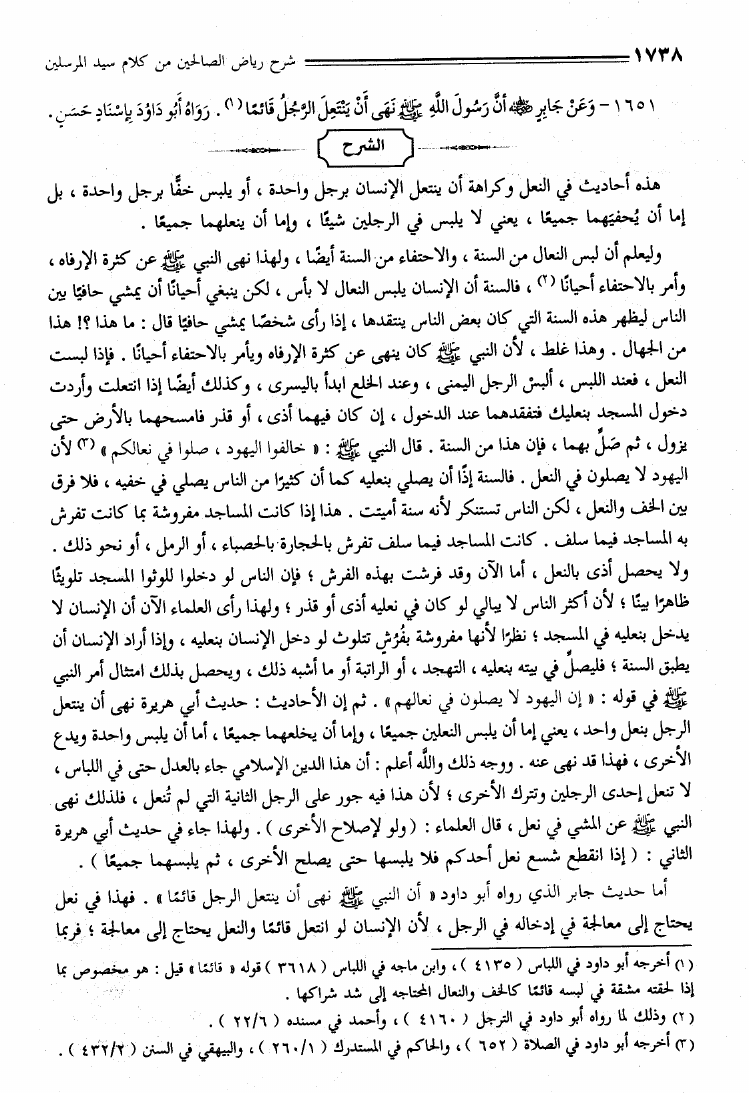 ١٧٣٨ شرح رياض الصالحين من كلام سيد المرسلين
١٦٥١ - وَعَنْ جَابِرٍ ﷺ أَنَّ رَسُولَ اللَّهِ ﷺ نَهَى أَنْ يَنْتَعِلَ الرَّجُلُ قَائمًا (١) . رَوَاهُ أَبُو دَاوُدَ بِإِسْنَادٍ حَسَنٍ .
الشرح
هذه أحاديث في النعل وكراهة أن ينتعل الإنسان برجل واحدة ، أو يلبس خفًّا برجل واحدة ، بل
إما أن يُحفيَهما جميعًا ، يعني لا يلبس في الرجلين شيئًا ، وإما أن ينعلهما جميعًا .
وليعلم أن لبس النعال من السنة ، والاحتفاء من السنة أيضًا ، ولهذا نهى النبي ﷺ عن كثرة الإرفاه ،
وأمر بالاحتفاء أحيانًا (٢) ، فالسنة أن الإنسان يلبس النعال لا بأس ، لكن ينبغي أحيانًا أن يمشي حافيًا بين
الناس ليظهر هذه السنة التي كان بعض الناس ينتقدها ، إذا رأى شخصًا يمشي حافيًا قال : ما هذا ؟! هذا
من الجهال . وهذا غلط ، لأن النبي ﷺ كان ينهى عن كثرة الإرفاه ويأمر بالاحتفاء أحيانًا . فإذا لبست
النعل ، فعند اللبس ، ألبسْ الرجل اليمنى ، وعند الخلع ابدأ باليسرى ، وكذلك أيضًا إذا انتعلت وأردت
دخول المسجد بنعليك فتفقدهما عند الدخول ، إن كان فيهما أذى ، أو قذر فامسحهما بالأرض حتى
يزول ، ثم صَلِّ بهما ، فإن هذا من السنة . قال النبي ﷺ : « خالفوا اليهود ، صلوا في نعالكم » (٣) لأن
اليهود لا يصلون في النعل . فالسنة إذًا أن يصلي بنعليه كما أن كثيرًا من الناس يصلي في خفيه ، فلا فرق
بين الخف والنعل ، لكن الناس تستنكر لأنه سنة أميتت . هذا إذا كانت المساجد مفروشة بما كانت تفرش
به المساجد فيما سلف . كانت المساجد فيما سلف تفرش بالحجارة بالحصباء ، أو الرمل ، أو نحو ذلك .
ولا يحصل أذى بالنعل ، أما الآن وقد فرشت بهذه الفرش ؛ فإن الناس لو دخلوا للوثوا المسجد تلويثًا
ظاهرًا بينًا ؛ لأن أكثر الناس لا يبالي لو كان في نعليه أذى أو قذر ؛ ولهذا رأى العلماء الآن أن الإنسان لا
يدخل بنعليه في المسجد ؛ نظرًا لأنها مفروشة بفُرُشٍ تتلوث لو دخل الإنسان بنعليه ، وإذا أراد الإنسان أن
يطبق السنة ؛ فليصلِّ في بيته بنعليه ، التهجد ، أو الراتبة أو ما أشبه ذلك ، ويحصل بذلك امتثال أمر النبي
ﷺ في قوله : « إن اليهود لا يصلون في نعالهم » . ثم إن الأحاديث : حديث أبي هريرة نهى أن ينتعل
الرجل بنعل واحد ، يعني إما أن يلبس النعلين جميعًا ، وإما أن يخلعهما جميعًا ، أما أن يلبس واحدة ويدع
الأخرى ، فهذا قد نهى عنه . ووجه ذلك واللَّه أعلم : أن هذا الدين الإسلامي جاء بالعدل حتى في اللباس ،
لا تنعل إحدى الرجلين وتترك الأخرى ؛ لأن هذا فيه جور على الرجل الثانية التي لم تُنعل ، فلذلك نهى
النبي ﷺ عن المشي في نعل ، قال العلماء : ( ولو لإصلاح الأخرى ) . ولهذا جاء في حديث أبي هريرة
الثاني : ( إذا انقطع شسع نعل أحدكم فلا يلبسها حتى يصلح الأخرى ، ثم يلبسهما جميعًا ) .
أما حديث جابر الذي رواه أبو داود « أن النبي ﷺ نهى أن ينتعل الرجل قائمًا » . فهذا في نعل
يحتاج إلى معالجة في إدخاله في الرجل ، لأن الإنسان لو انتعل قائمًا والنعل يحتاج إلى معالجة ؛ فربما
(١) أخرجه أبو داود في اللباس ( ٤١٣٥ ) ، وابن ماجه في اللباس ( ٣٦١٨ ) قوله « قائمًا » قيل : هو مخصوص بما
إذا لحقته مشقة في لبسه قائمًا كالخف والنعال المحتاجه إلى شد شراكها .
(٢) وذلك لما رواه أبو داود في الترجل ( ٤١٦٠ ) ، وأحمد في مسنده ( ٢٢/٦ ) .
(٣) أخرجه أبو داود في الصلاة ( ٦٥٢ ) ، والحاكم في المستدرك ( ٢٦٠/١ ) ، والبيهقي في السنن ( ٤٣٢/٢ ) .